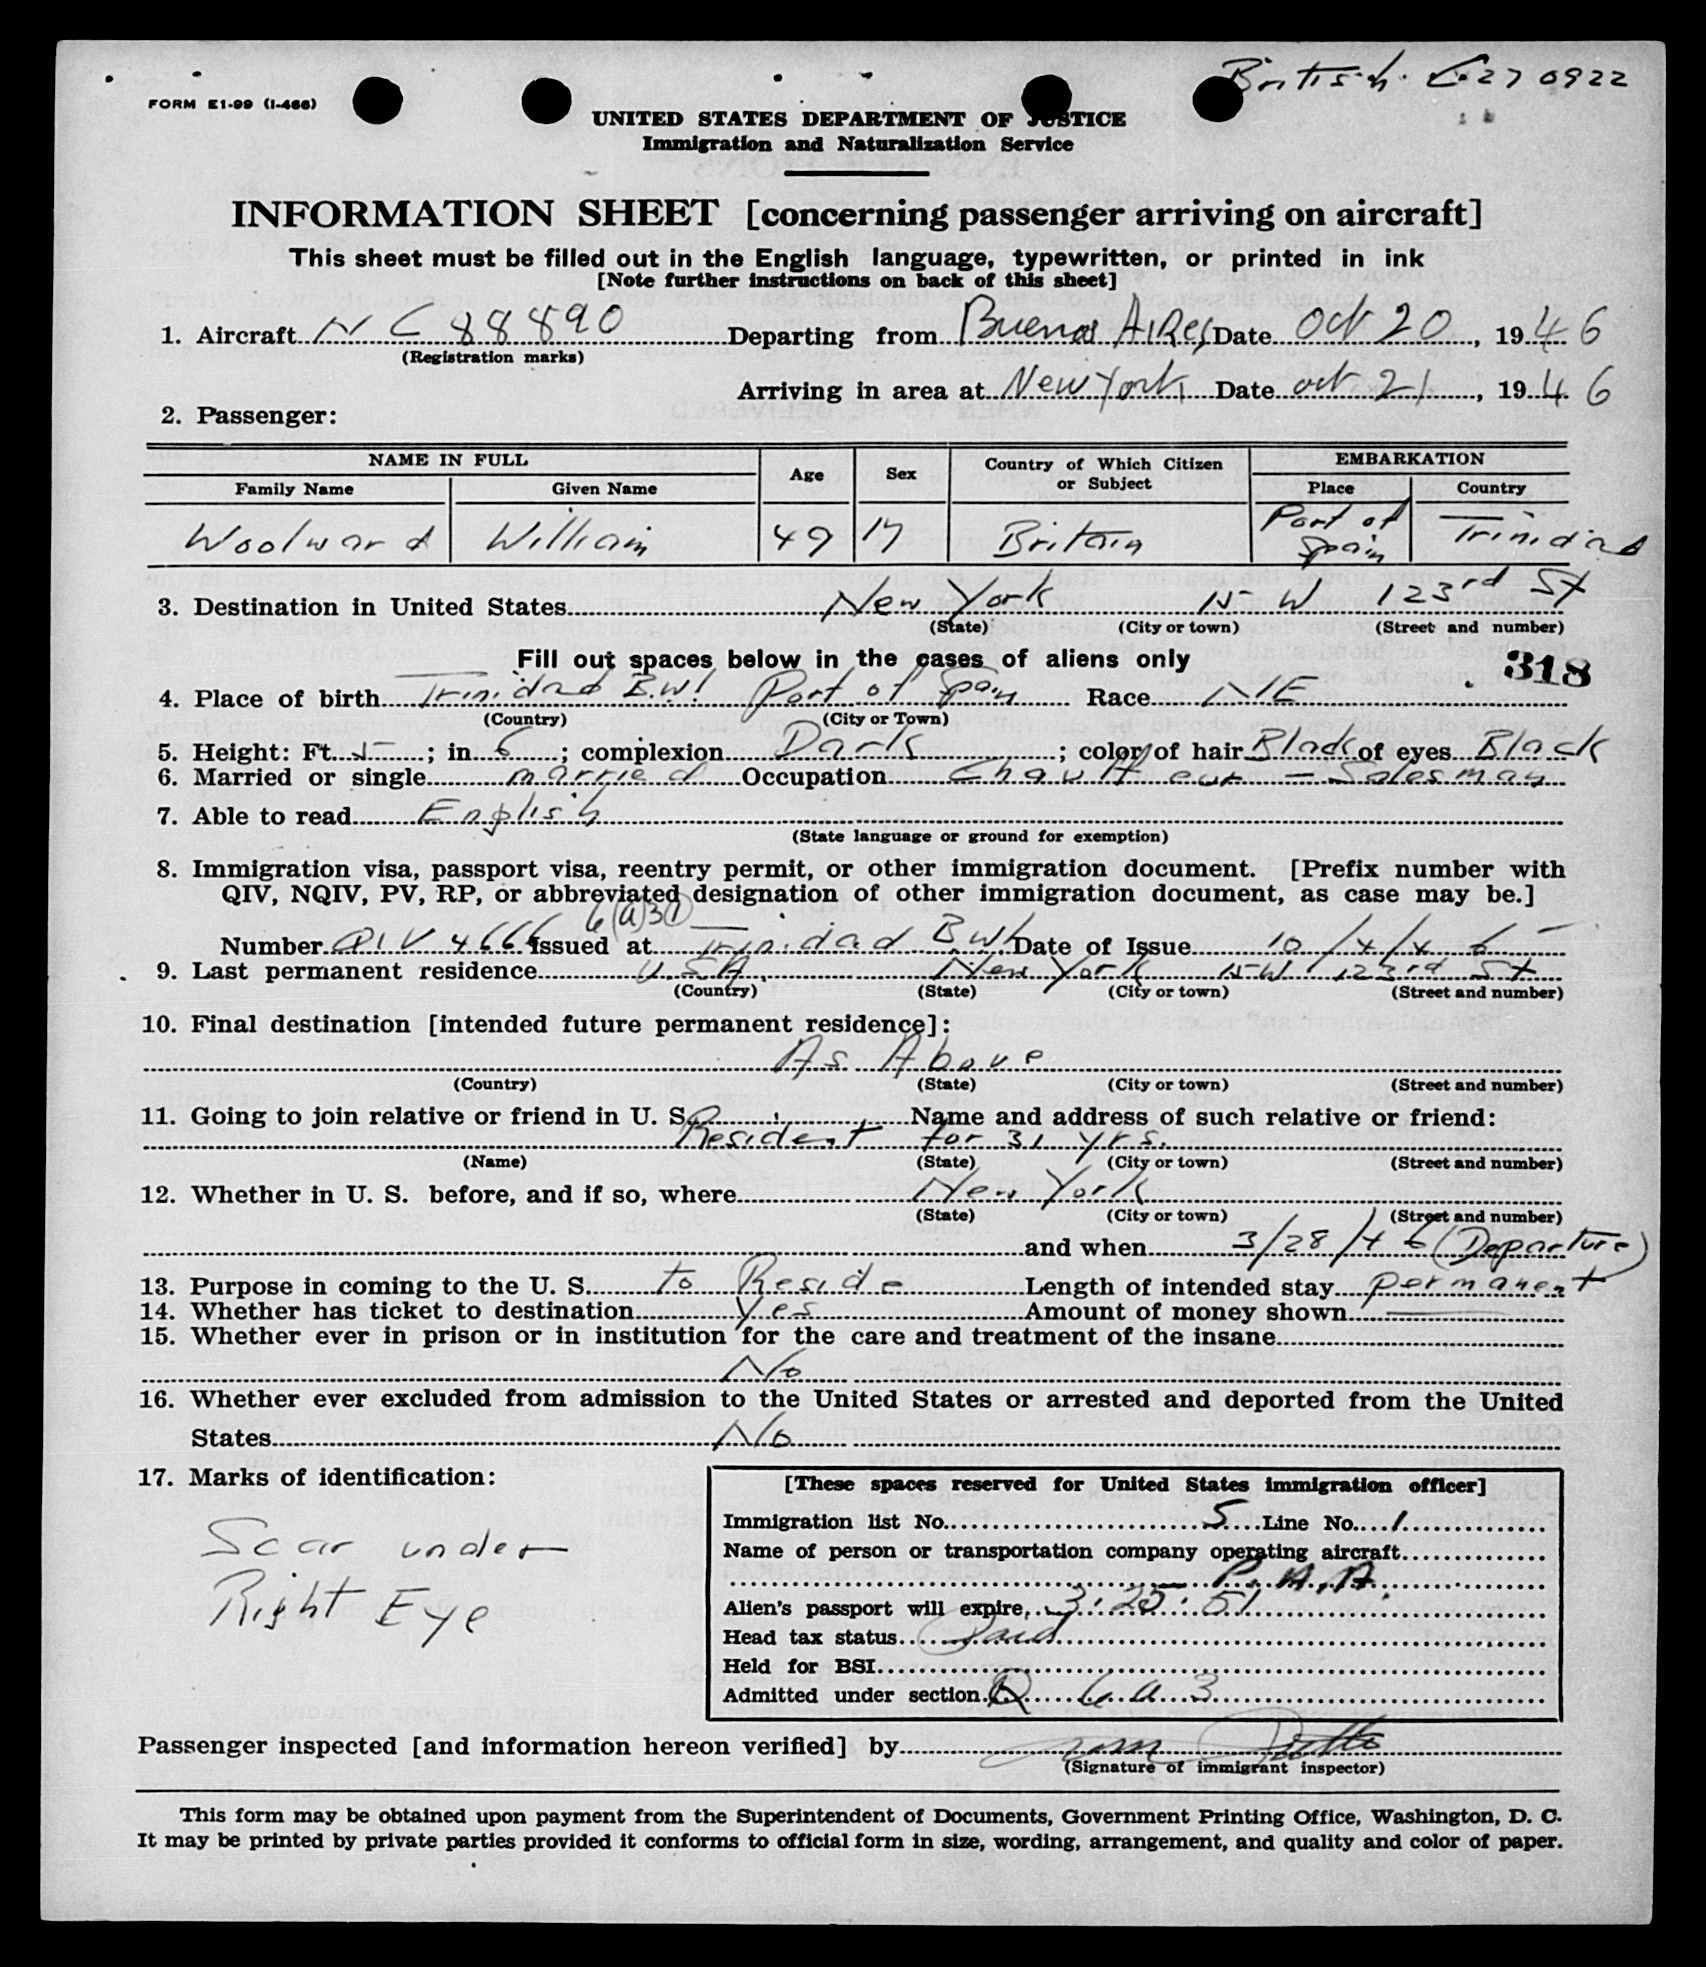 British C270922
FORM E1-99 (I-466)
UNITED STATES DEPARTMENT OF JUSTICE
Immigration and Naturalization Service
INFORMATION SHEET [concerning passenger arriving on aircraft]
This sheet must be filled out in the English language, typewritten, or printed in ink
[Note further instructions on back of this sheet]
1. Aircraft NC 88890 Departing from Buenos Aires Date Oct 20, 1946
(Registration marks)
Arriving in area at New York Date Oct 21, 1946
2. Passenger:
NAME IN FULL Age Sex Country of Which Citizen or Subject EMBARKATION
Family Name Given Name Place Country
Woolward William 49 M Britain Port of Spain Trinidad
3. Destination in United States New York 15 W 123rd St
(State) (City or town) (Street and number)
Fill out spaces below in the cases of aliens only 318
4. Place of birth Trinidad B.W.I Port of Spain Race
(Country) (City or Town)
5. Height: Ft. 5; in. 6; complexion Dark; color of hair Black of eyes Black
6. Married or single married Occupation Chauffeur - Salesman
7. Able to read English
(State language or ground for exemption)
8. Immigration visa, passport visa, reentry permit, or other immigration document. [Prefix number with
QIV, NQIV, PV, RP, or abbreviated designation of other immigration document, as case may be.]
Number QIV 4666 Issued at Trinidad BWI Date of Issue 10/4/46
9. Last permanent residence USA. New York 15 W 123rd St
(Country) (State) (City or town) (Street and number)
10. Final destination [intended future permanent residence]:
As Above
(Country) (State) (City or town) (Street and number)
11. Going to join relative or friend in U. S. Name and address of such relative or friend:
Resident for 31 yrs.
(Name) (State) (City or town) (Street and number)
12. Whether in U. S. before, and if so, where New York
(State) (City or town) (Street and number)
and when 3/28/46 (Departure)
13. Purpose in coming to the U. S. To Reside Length of intended stay permanent
14. Whether has ticket to destination Yes Amount of money shown
15. Whether ever in prison or in institution for the care and treatment of the insane
No
16. Whether ever excluded from admission to the United States or arrested and deported from the United
States No
17. Marks of identification:
Scar under
Right Eye
[These spaces reserved for United States immigration officer]
Immigration list No. 5 Line No. 1
Name of person or transportation company operating aircraft
P.A.A.
Alien's passport will expire 3-25-51
Head tax status Paid
Held for BSI
Admitted under section 6 a 3
Passenger inspected [and information hereon verified] by
(Signature of immigrant inspector)
This form may be obtained upon payment from the Superintendent of Documents, Government Printing Office, Washington, D. C.
It may be printed by private parties provided it conforms to official form in size, wording, arrangement, and quality and color of paper.